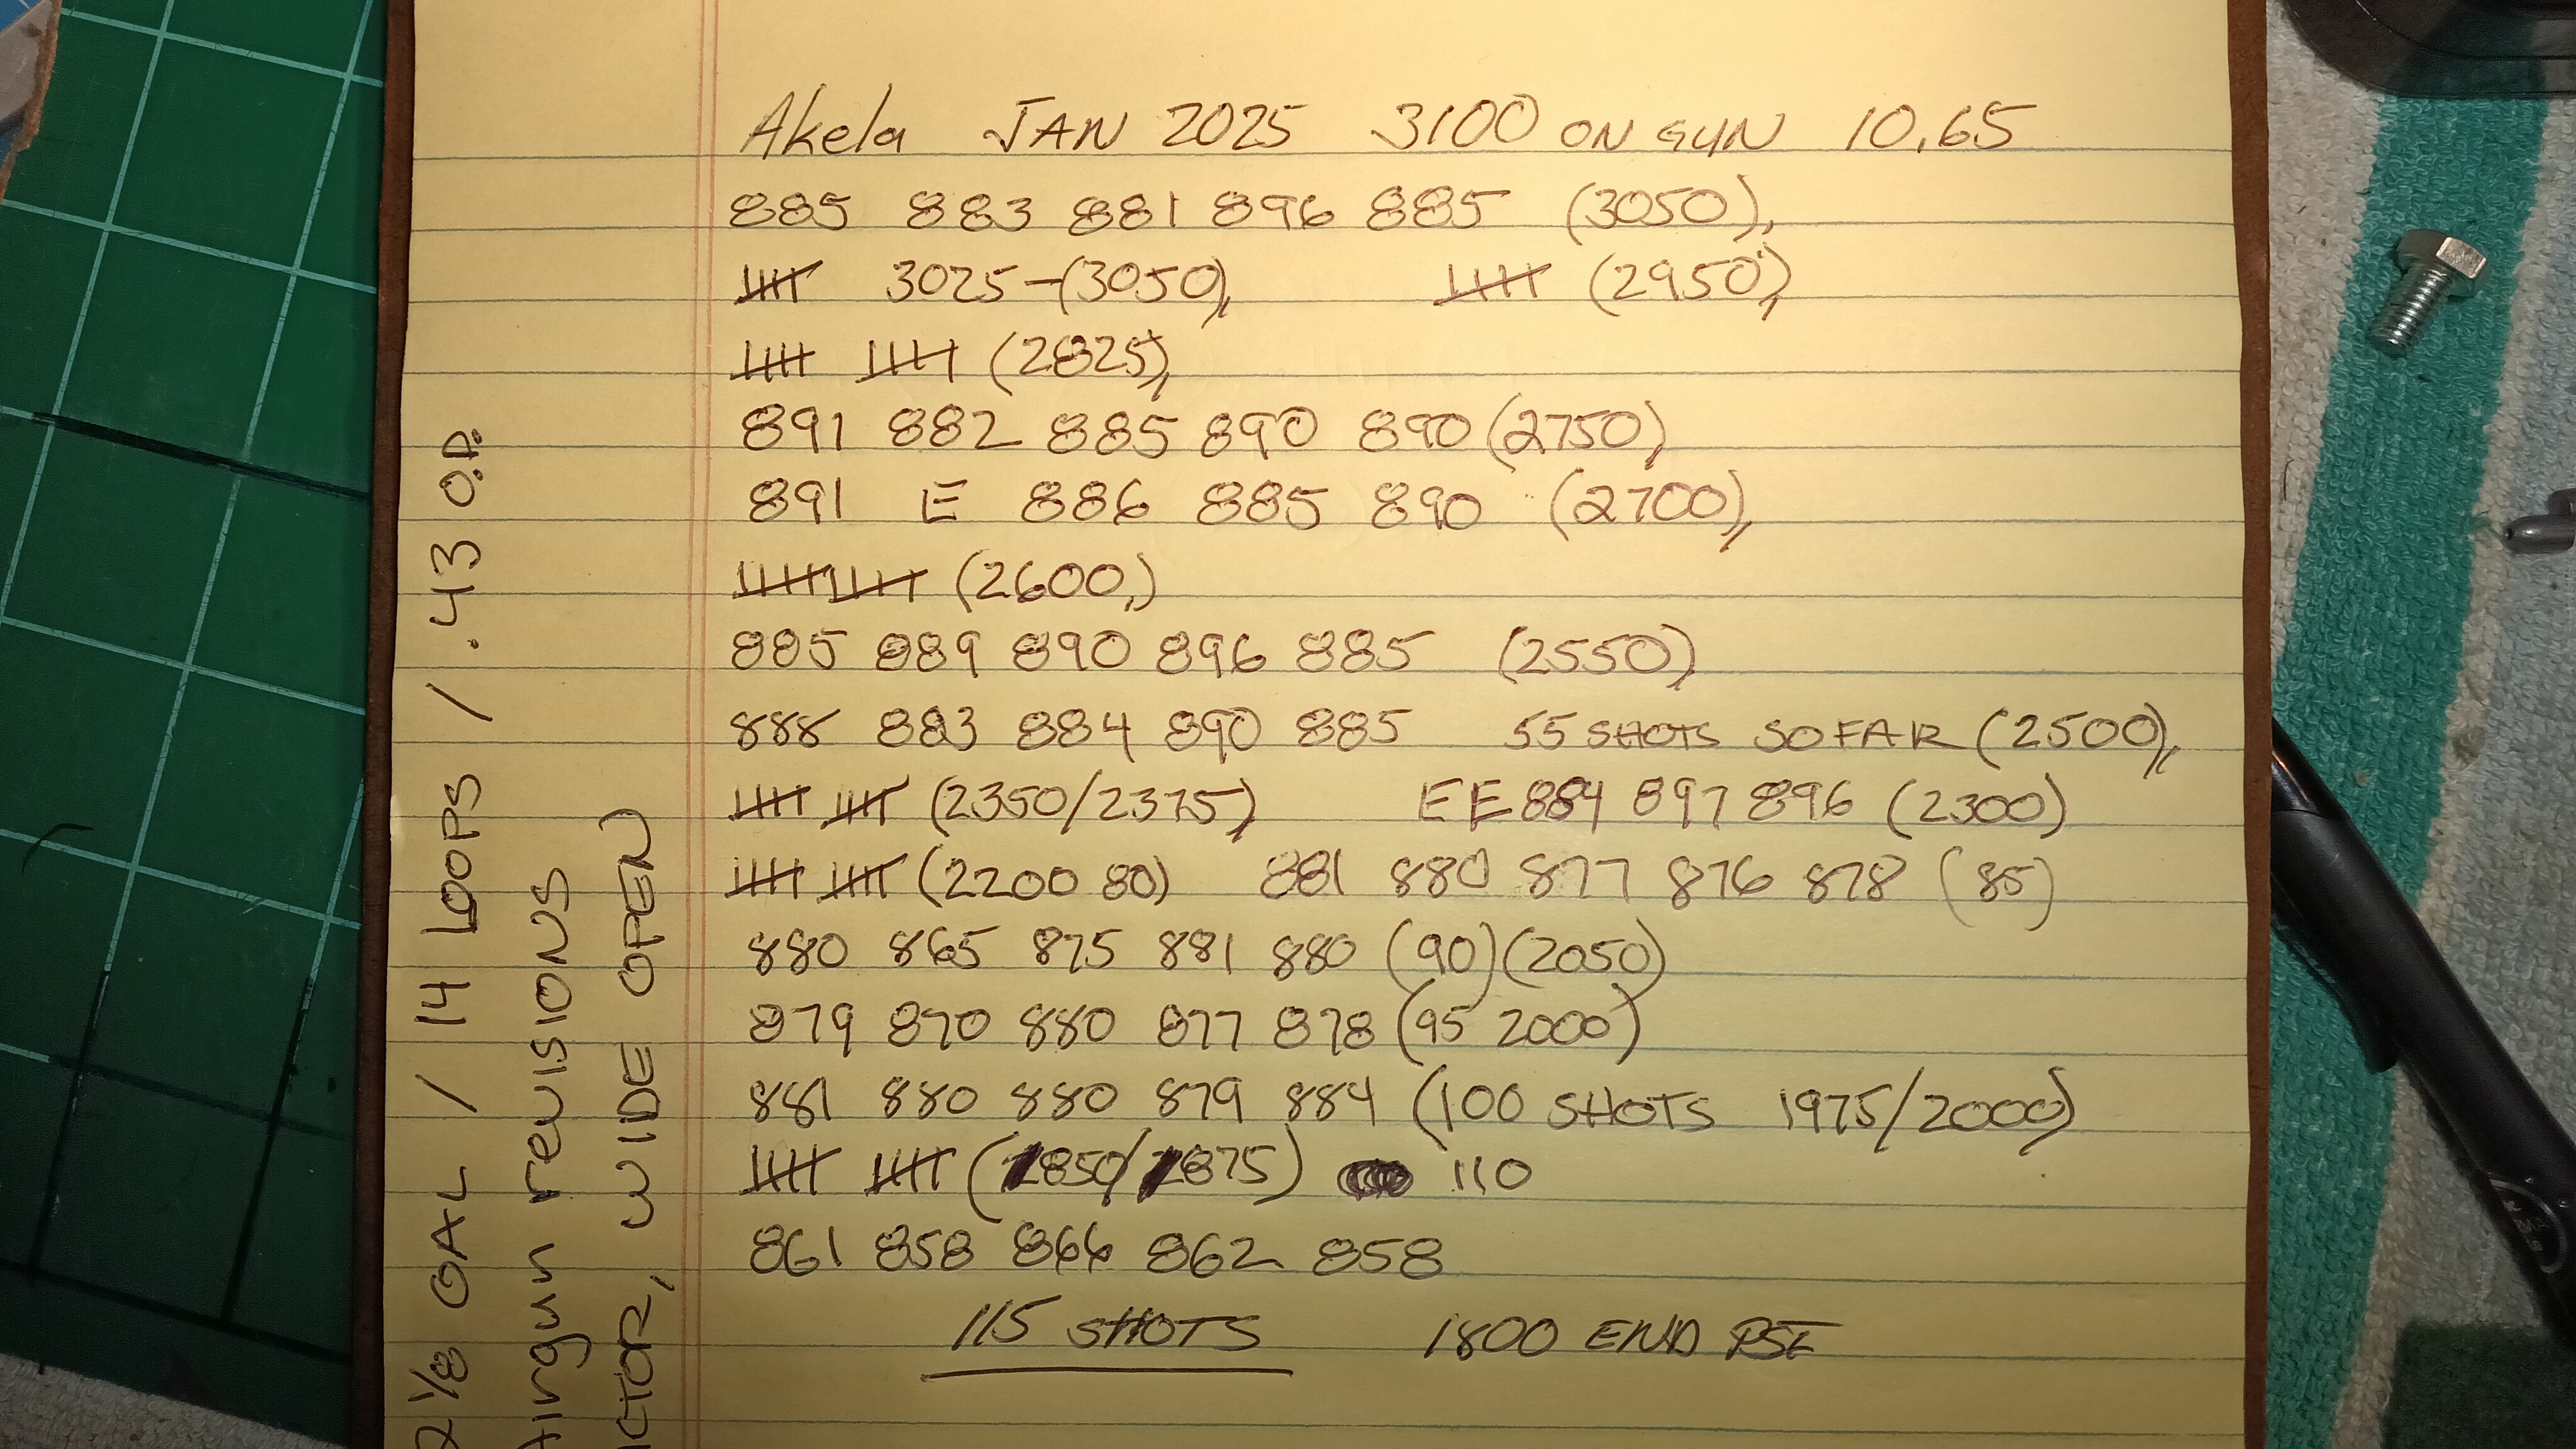 Akela JAN 2025 3100 ON GUN 10.65
885 883 881 896 885 (3050),
3025-(3050), (2950),
(2825),
891 882 885 890 890 (2750),
891 E 886 885 890 (2700),
(2600,)
885 889 890 896 885 (2550),
888 883 884 890 885 55 SHOTS SO FAR (2500),
(2350/2375) EE 884 897 896 (2300)
(2200 80) 881 880 877 876 878 (85)
880 865 875 881 880 (90) (2050)
879 870 880 877 878 (95 2000)
881 880 880 879 884 (100 SHOTS 1975/2000)
(1850/1875) 110
861 858 866 862 858
115 SHOTS 1800 END PSI
2 1/8 OAL / 14 LOOPS / .43 O.D.
Airgun revisions
WIDE OPEN